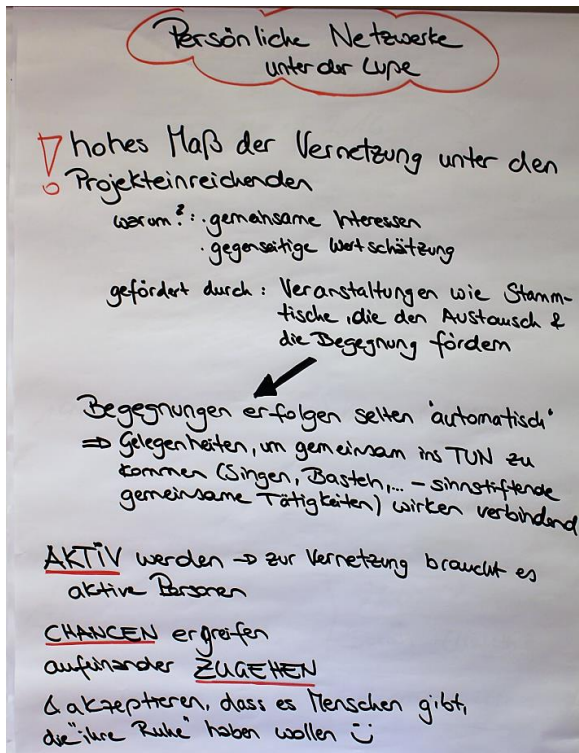 Persönliche Netzwerke
unter der Lupe
! hohes Maß der Vernetzung unter den
Projekteinreichenden
warum?: · gemeinsame Interessen
· gegenseitige Wertschätzung
gefördert durch: Veranstaltungen wie Stamm-
tische, die den Austausch &
die Begegnung fördern
Begegnungen erfolgen selten "automatisch"
⇒ Gelegenheiten, um gemeinsam ins TUN zu
kommen (Singen, Basteln,... - sinnstiftende
gemeinsame Tätigkeiten) wirken verbindend
AKTIV werden → zur Vernetzung braucht es
aktive Personen
CHANCEN ergreifen
aufeinander ZUGEHEN
& akzeptieren, dass es Menschen gibt,
die "ihre Ruhe" haben wollen ☺